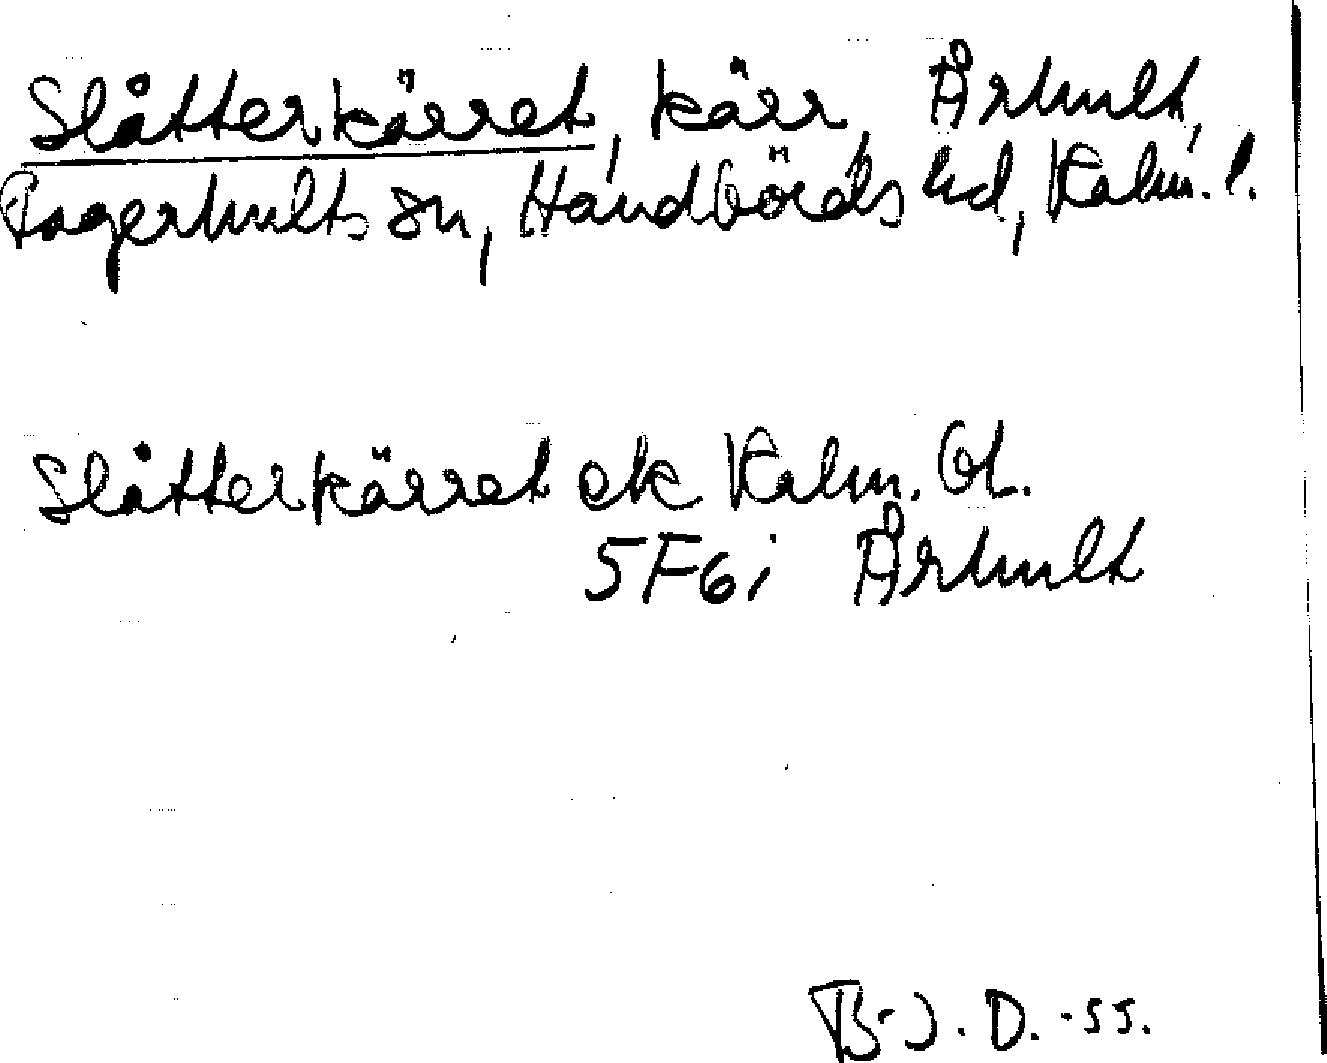 Slåtterkärret, kärr, Århult,
Fagerhults sn, Handbörds hd, Kalm. l.
Slåtterkärret ek Kalm. Gt.
5F6i Århult
B-J. D. -55.